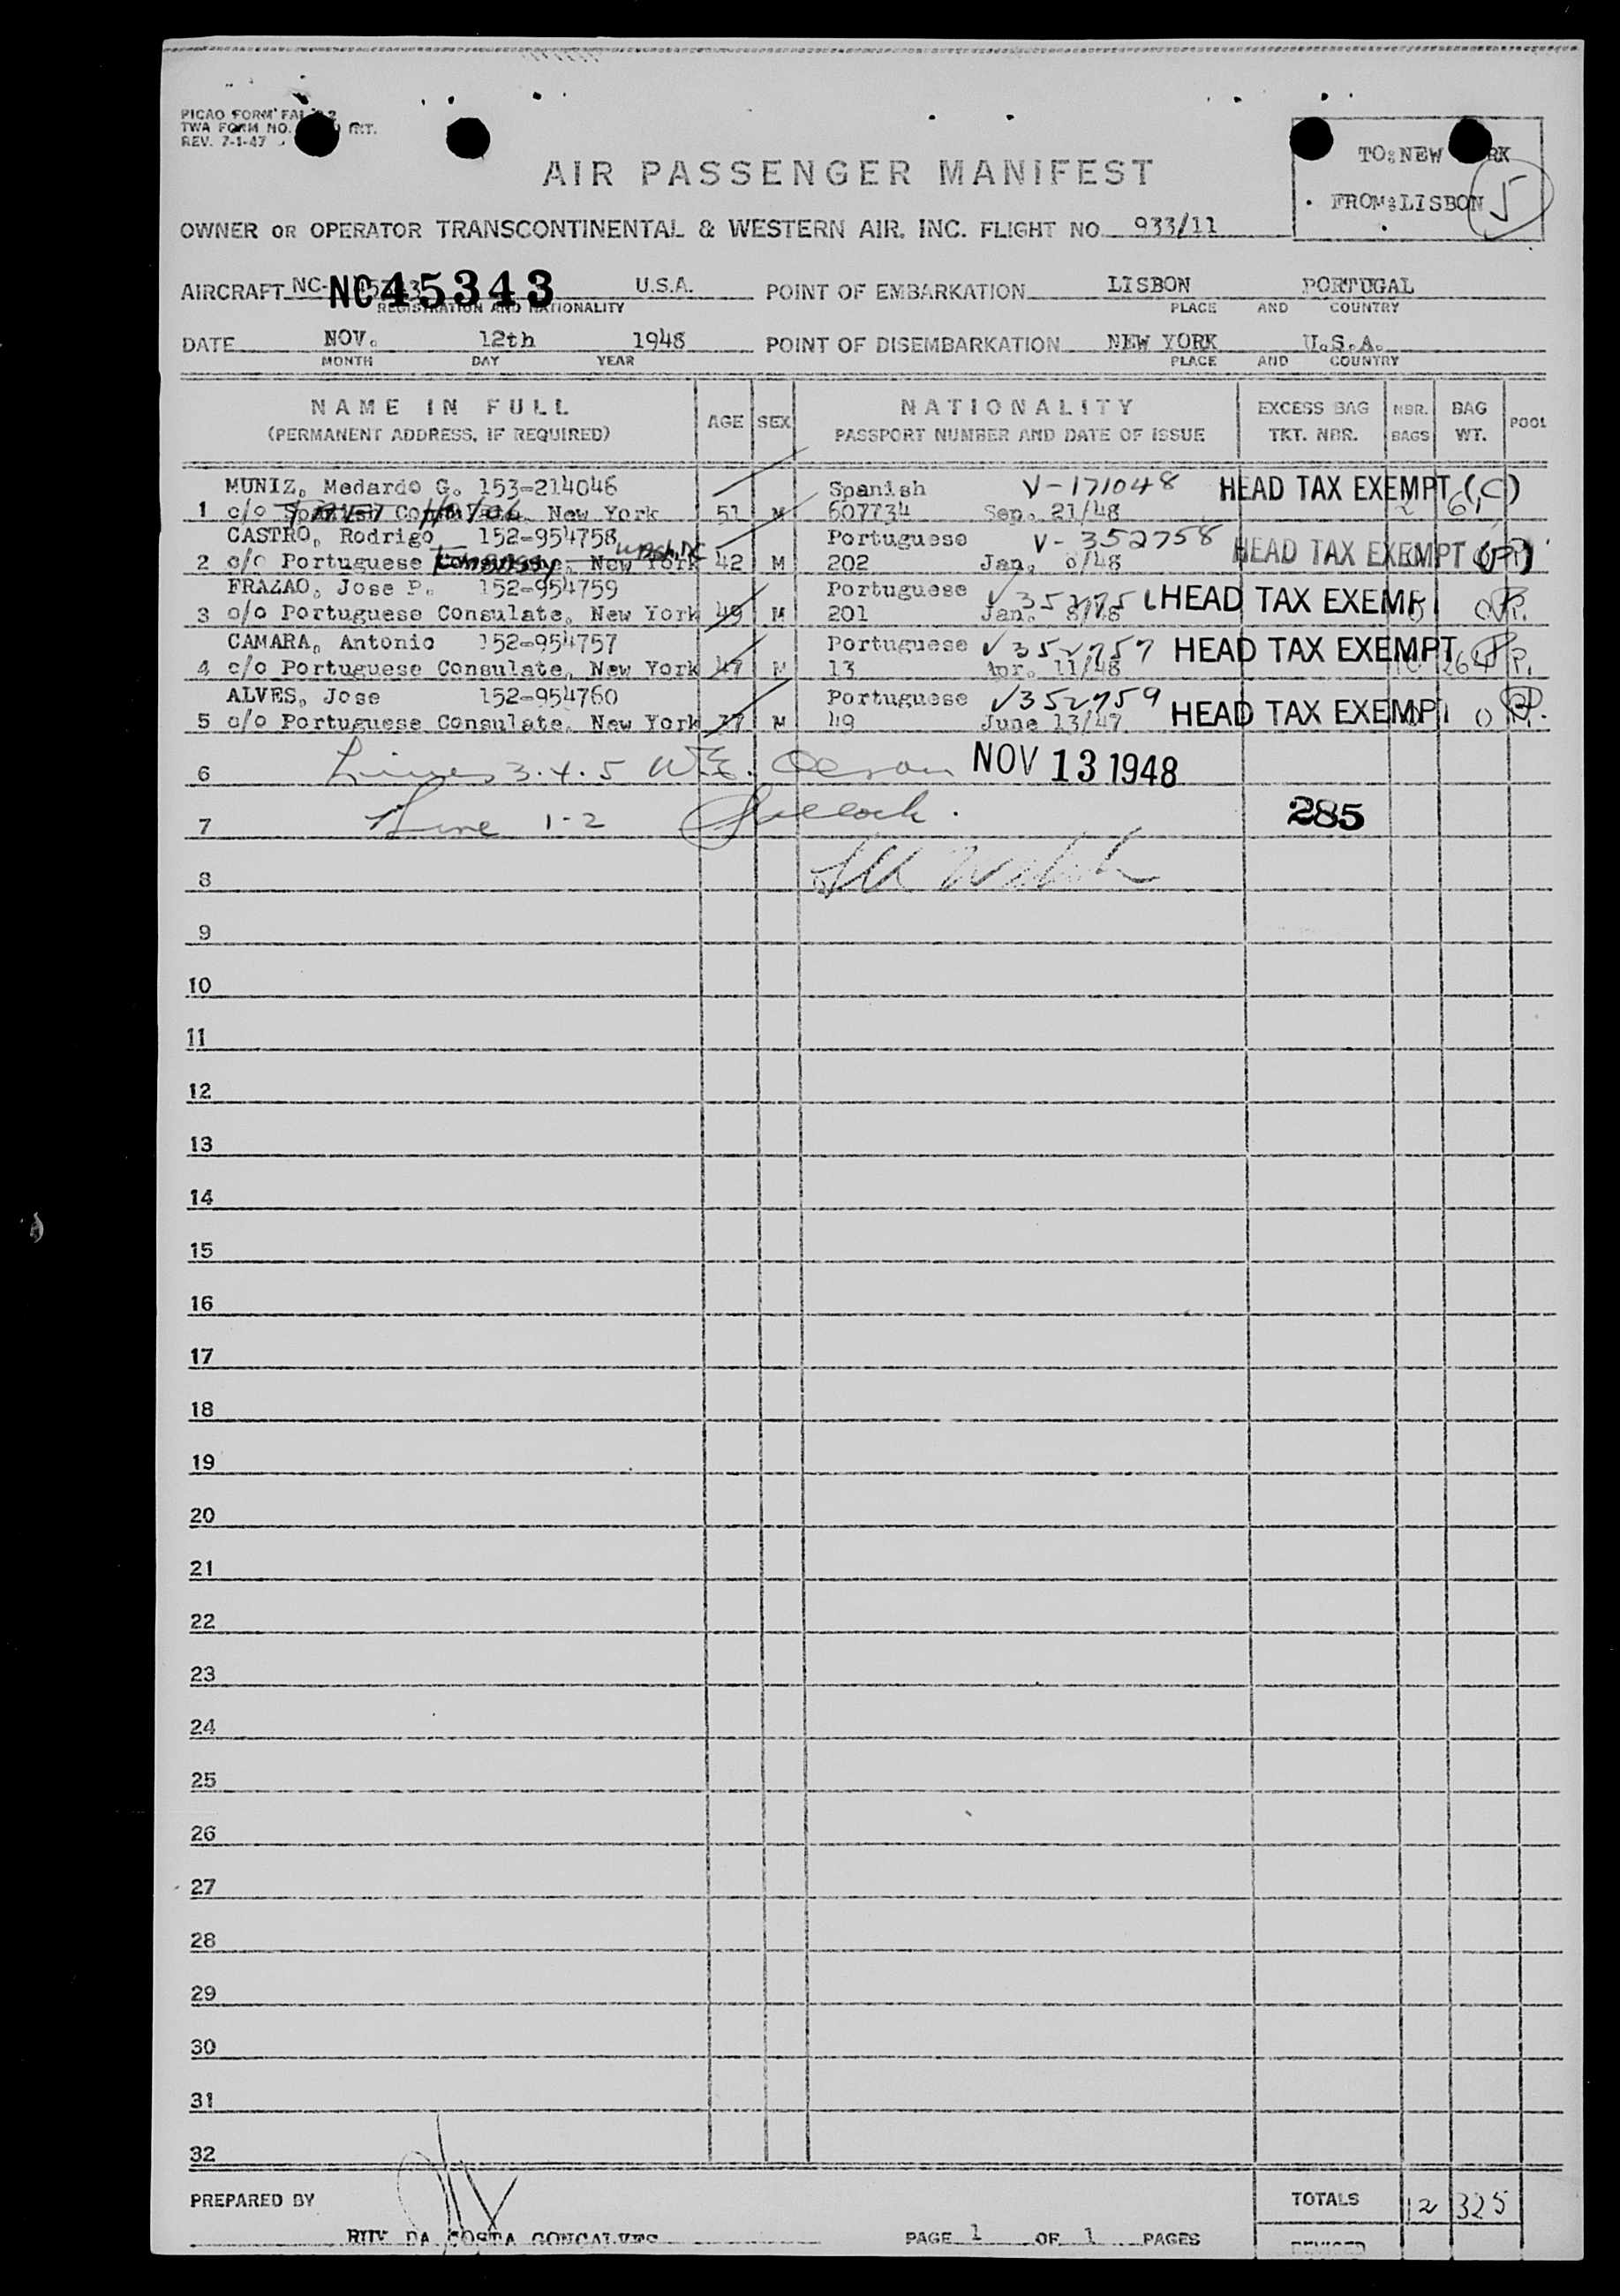 PICAO FORM FAL 2
TWA FORM NO. INT.
REV. 7-1-47
TO: NEW RK
FROM: LISBON
5
AIR PASSENGER MANIFEST
OWNER OR OPERATOR TRANSCONTINENTAL & WESTERN AIR, INC. FLIGHT NO. 933/11
AIRCRAFT NC- NC45343 U.S.A. POINT OF EMBARKATION LISBON PORTUGAL
REGISTRATION AND NATIONALITY PLACE AND COUNTRY
DATE NOV. 12th 1948 POINT OF DISEMBARKATION NEW YORK U.S.A.
MONTH DAY YEAR PLACE AND COUNTRY
NAME IN FULL AGE SEX NATIONALITY EXCESS BAG NBR. BAG POOL
(PERMANENT ADDRESS, IF REQUIRED) PASSPORT NUMBER AND DATE OF ISSUE TKT. NBR. BAGS WT.
MUNIZ, Medardo G. 153-214046 Spanish V-171048 HEAD TAX EXEMPT (C)
1 c/o Spanish New York 51 M 607734 Sep. 21/48 2 61
CASTRO, Rodrigo 152-954758 Wash DC Portuguese V-352758 HEAD TAX EXEMPT
2 c/o Portuguese Embassy New York 42 M 202 Jan. 8/48
FRAZAO, Jose P. 152-954759 Portuguese V HEAD TAX EXEMP
3 c/o Portuguese Consulate, New York 49 M 201 Jan. 8/48
CAMARA, Antonio 152-954757 Portuguese V352757 HEAD TAX EXEMPT
4 c/o Portuguese Consulate, New York 47 M 13 Apr. 11/48 10 264 P.
ALVES, Jose 152-954760 Portuguese V352759 HEAD TAX EXEMP
5 c/o Portuguese Consulate, New York 37 M 49 June 13/47
6 Lines 3.4.5 W.E. Olson NOV 13 1948
7 Line 1-2 285
8
9
10
11
12
13
14
15
16
17
18
19
20
21
22
23
24
25
26
27
28
29
30
31
32
PREPARED BY TOTALS 12 325
RUY DA COSTA GONCALVES PAGE 1 OF 1 PAGES REVISED